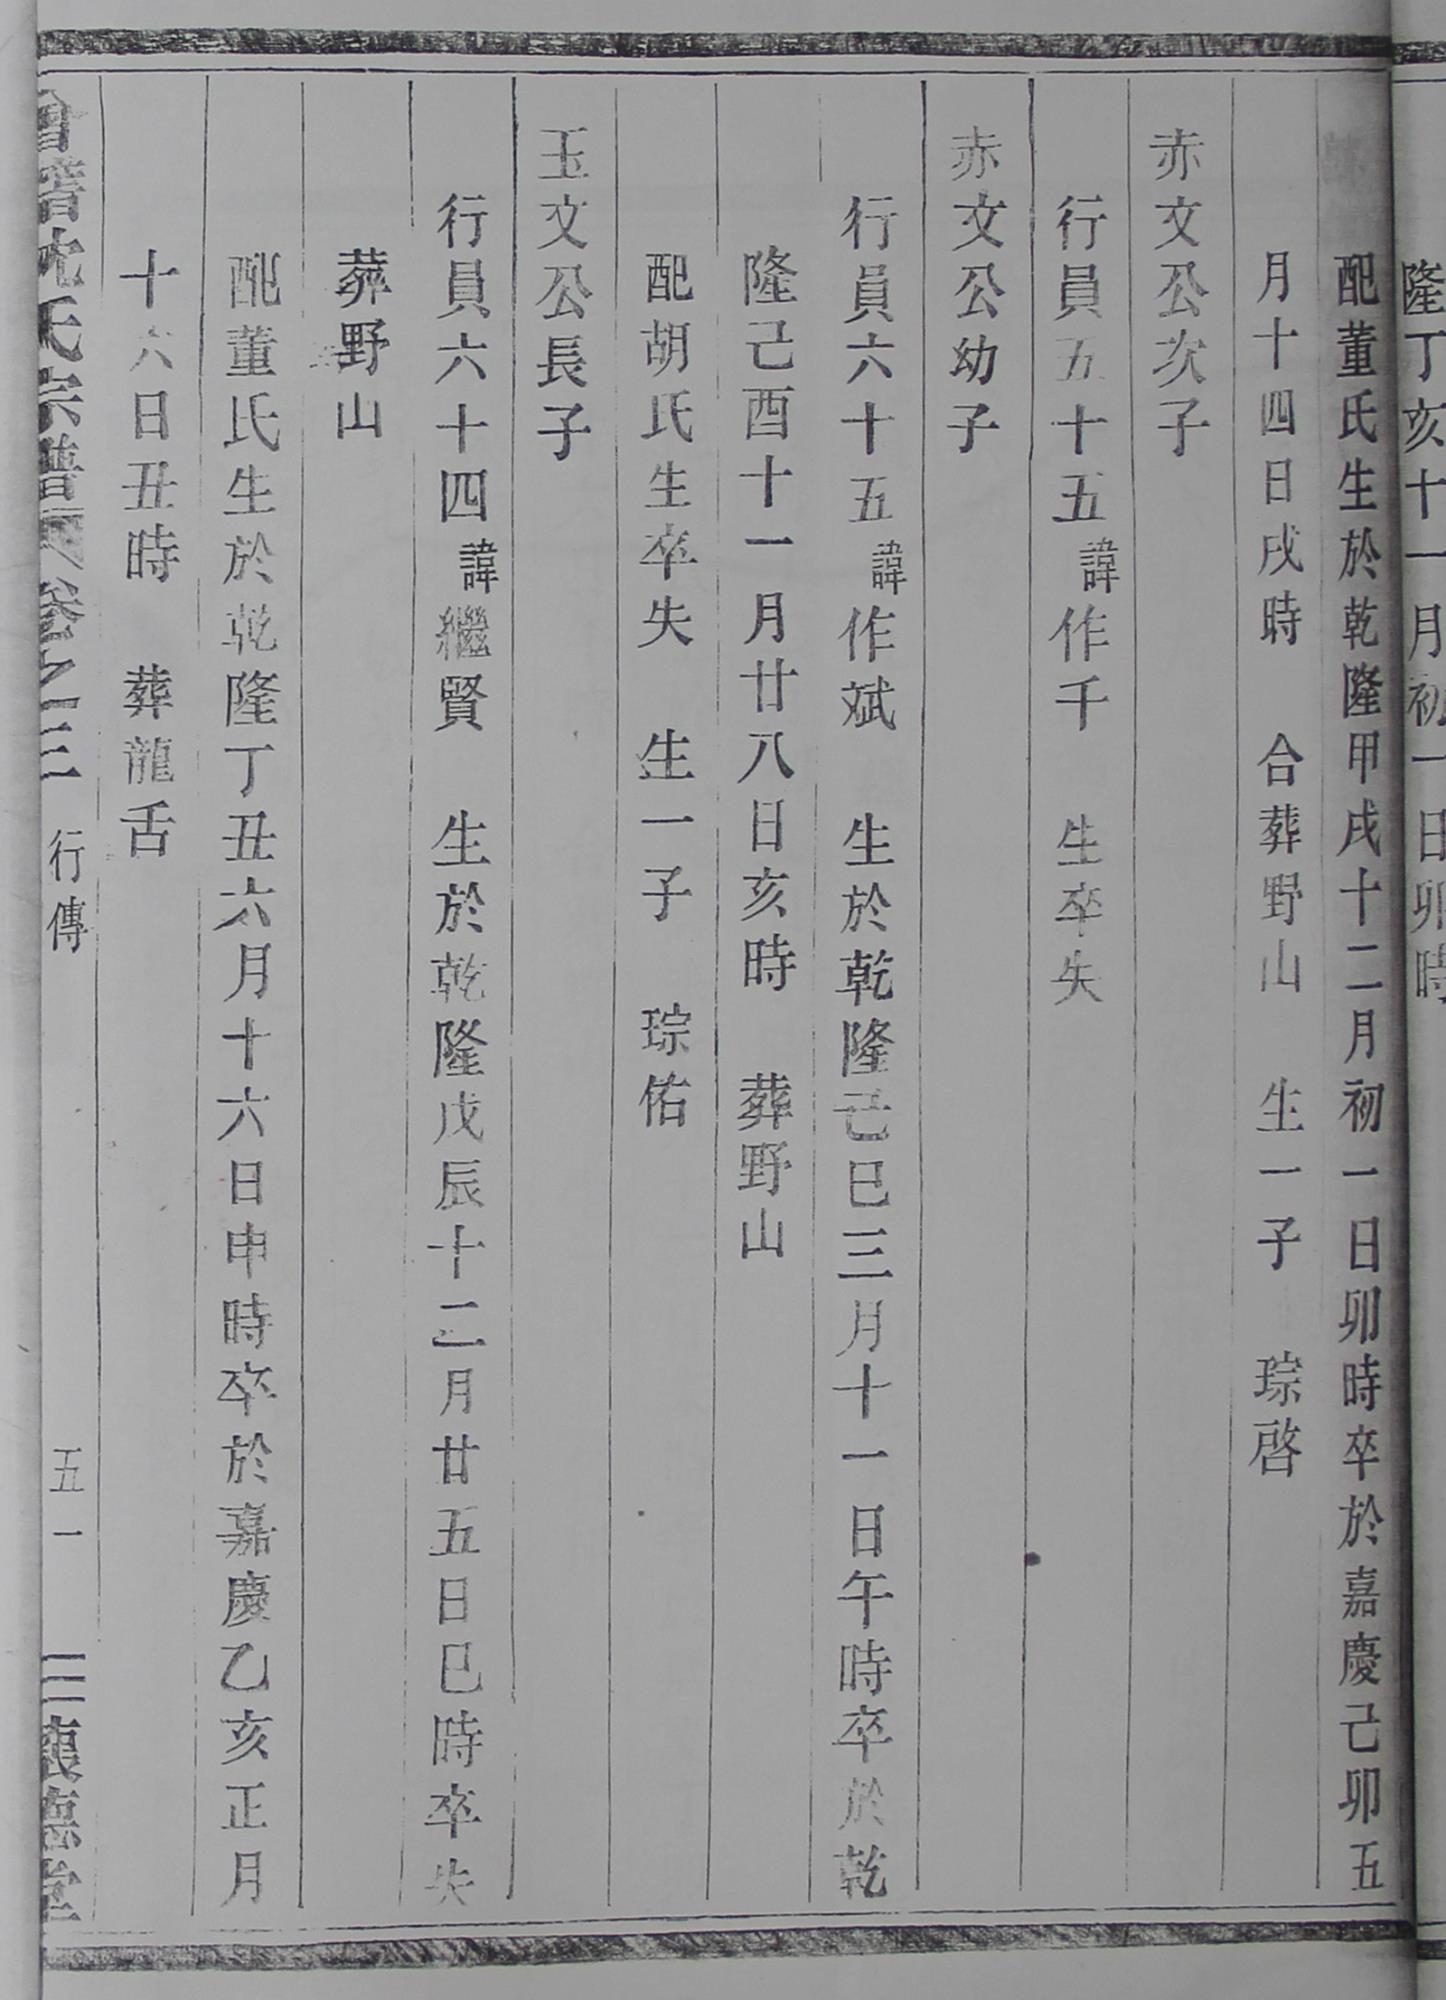 隆丁亥十一月初一日卯時
配董氏生於乾隆甲戌十二月初一日卯時卒於嘉慶己卯五
月十四日戌時　合葬野山　生一子　琮啓
赤文公次子
行員五十五諱作千　生卒失
赤文公幼子
行員六十五諱作斌　生於乾隆己巳三月十一日午時卒於乾
隆己酉十一月廿八日亥時　葬野山
配胡氏生卒失　生一子　琮佑
玉文公長子
行員六十四諱繼賢　生於乾隆戊辰十二月廿五日巳時卒失
葬野山
配董氏生於乾隆丁丑六月十六日申時卒於嘉慶乙亥正月
十六日丑時　葬龍舌
會稽沈氏宗譜　卷之三　行傳　五一　德堂